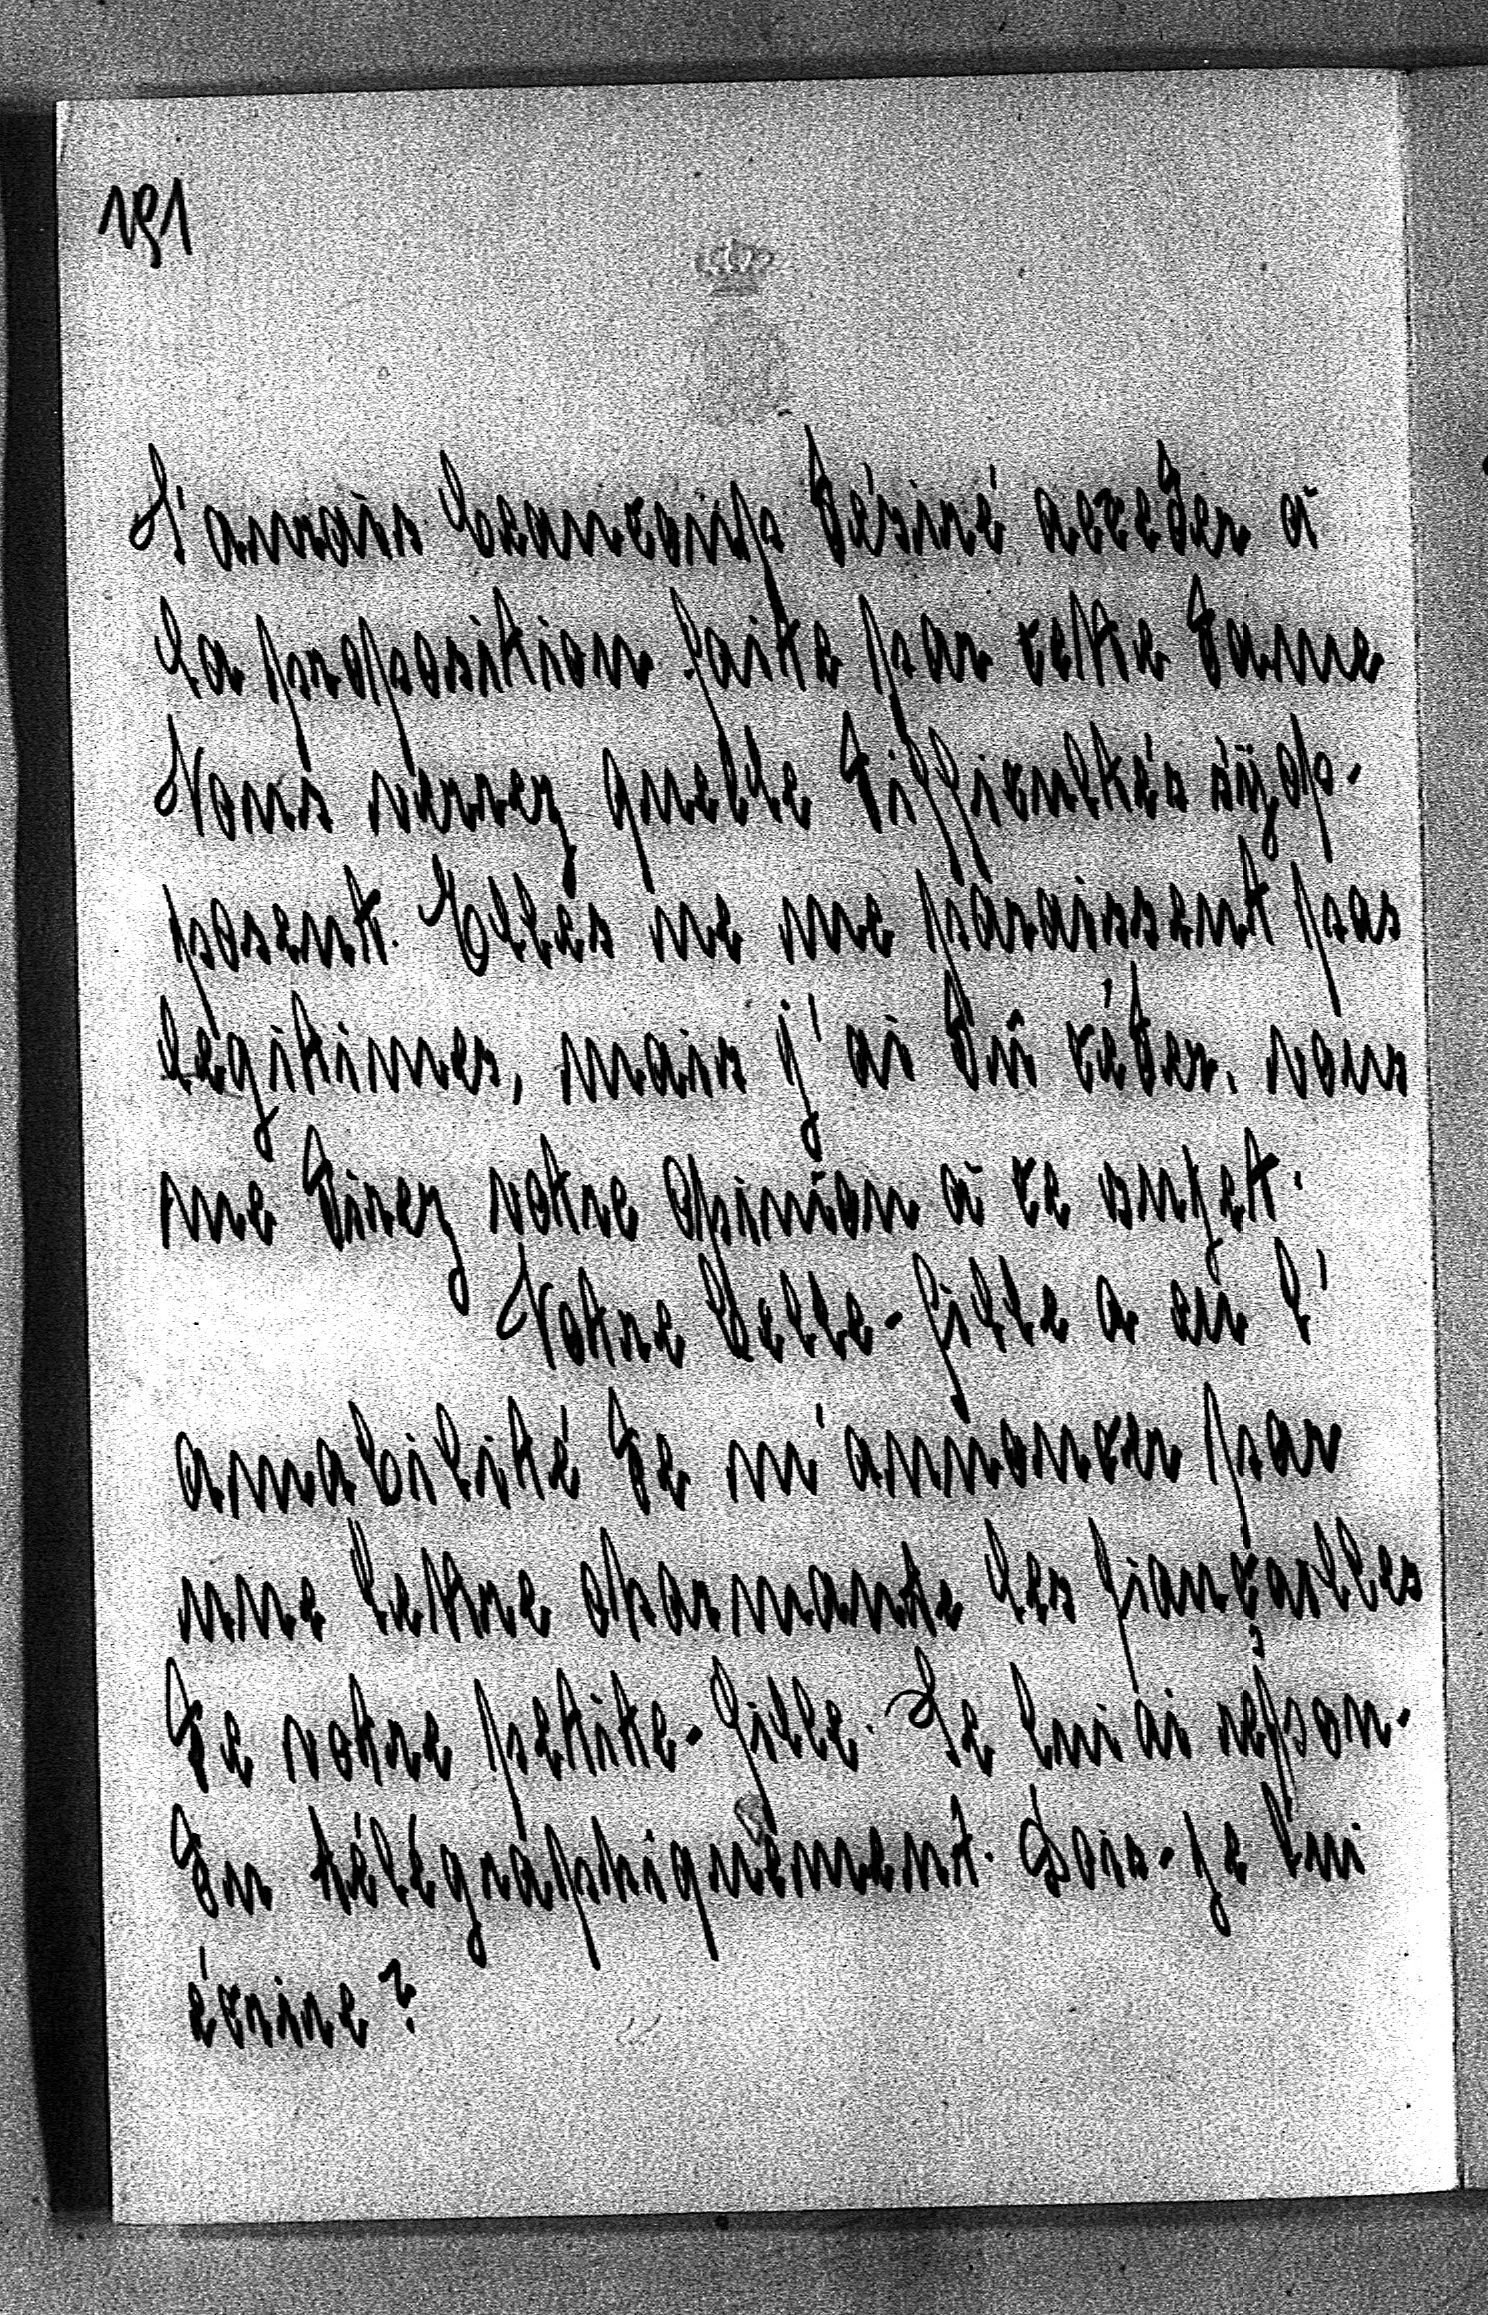 191
J'aurais beaucoup désiré accéder à
la proposition faite par cette dame
Vous verrez quelle difficultés s'y op-
posent. Elles ne me paraissent pas
légitimes, mais j'ai dû céder. vous
me direz votre opinion à ce sujet.
Votre belle-fille a eu l'
amabilité de m'annoncer par
une lettre charmante les fiançailles
de votre petite-fille. Je lui ai répon-
du télégraphiquement. Dois-je lui
écrire?